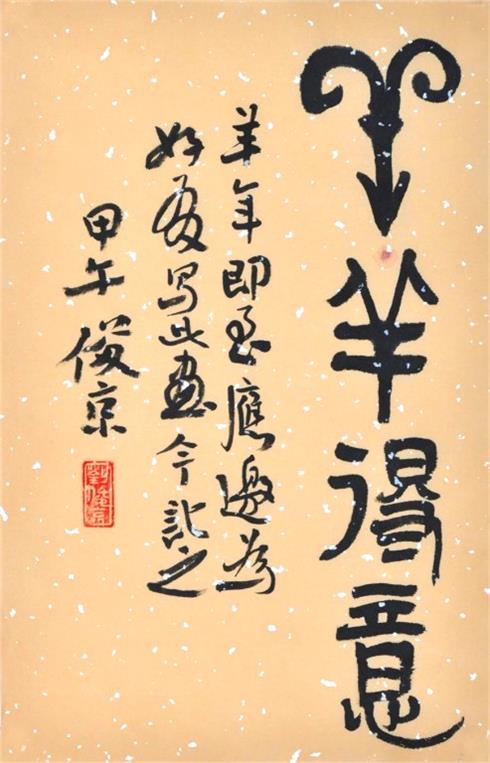 羊羊得意
羊年即至應邀為
好友写此畫今記之
甲午俊京
劉俊京